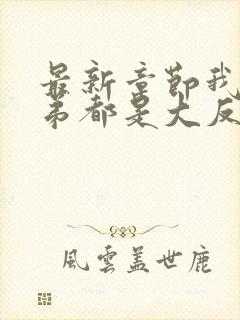 最新章节我
弟都是大反
風雲盖世鹿